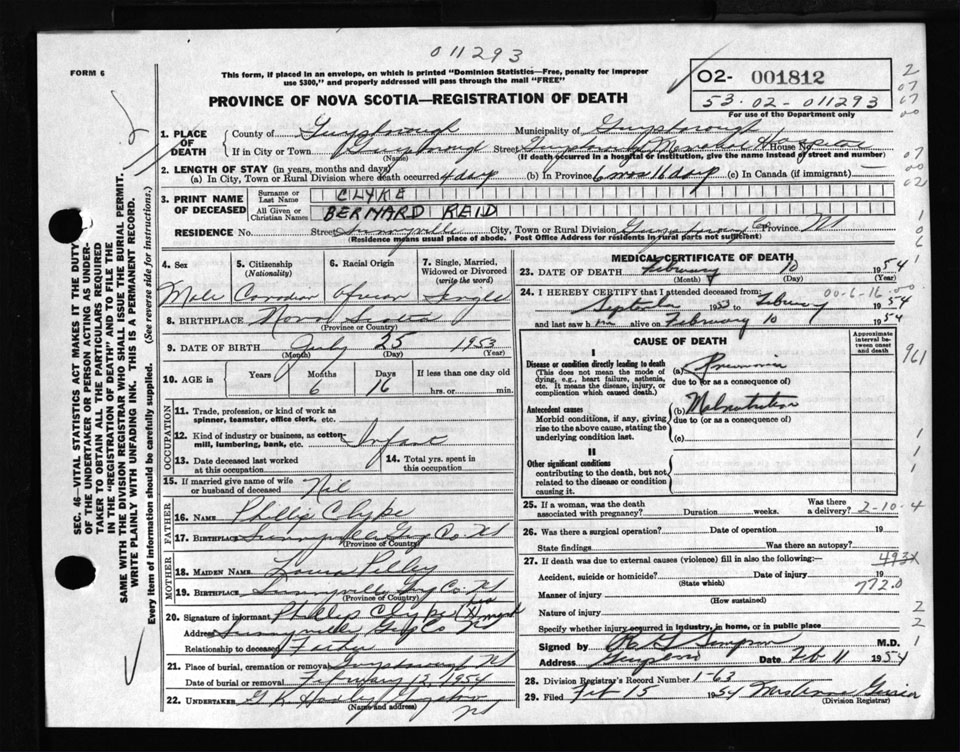 011293
FORM 6
This form, if placed in an envelope, on which is printed "Dominion Statistics—Free, penalty for improper
use $300," and properly addressed will pass through the mail "FREE"
O2- 001812
53-02-011293
For use of the Department only
PROVINCE OF NOVA SCOTIA—REGISTRATION OF DEATH
1. PLACE OF DEATH
County of Guysborough Municipality of Guysborough
If in City or Town Guysborough Street Guysborough Memorial Hospital House No.
(Name) (If death occurred in a hospital or institution, give the name instead of street and number)
2. LENGTH OF STAY (in years, months and days)
(a) In City, Town or Rural Division where death occurred 4 days (b) In Province 6 mos 16 days (c) In Canada (if immigrant)
3. PRINT NAME OF DECEASED
Surname or Last Name CLYKE
All Given or Christian Names BERNARD REID
RESIDENCE No. Street Sunnyville City, Town or Rural Division Guysborough Co Province NS
(Residence means usual place of abode. Post Office Address for residents in rural parts not sufficient)
4. Sex
Male
5. Citizenship (Nationality)
Canadian
6. Racial Origin
African
7. Single, Married, Widowed or Divorced (write the word)
Single
8. BIRTHPLACE Nova Scotia
(Province or Country)
9. DATE OF BIRTH July 25 1953
(Month) (Day) (Year)
10. AGE in Years Months Days If less than one day old
6 16 hrs. or min.
OCCUPATION
11. Trade, profession, or kind of work as spinner, teamster, office clerk, etc.
12. Kind of industry or business, as cotton-mill, lumbering, bank, etc. Infant
13. Date deceased last worked at this occupation
14. Total yrs. spent in this occupation
15. If married give name of wife or husband of deceased Nil
FATHER
16. NAME Phillip Clyke
17. BIRTHPLACE Sunnyville Guy Co. NS
(Province of Country)
MOTHER
18. MAIDEN NAME
19. BIRTHPLACE Sunnyville Guy Co. NS
(Province of Country)
20. Signature of informant Phillip Clyke (X) mark
Address Sunnyville, Guy Co NS
Relationship to deceased Father
21. Place of burial, cremation or removal Guysborough NS
Date of burial or removal February 12 1954
22. UNDERTAKER G. K.
(Name and address)
NS
MEDICAL CERTIFICATE OF DEATH
23. DATE OF DEATH February 10 1954
(Month) (Day)
24. I HEREBY CERTIFY that I attended deceased from: 00-6-16-00
September 1953 to February 1954
and last saw him alive on February 10 1954
CAUSE OF DEATH
Approximate interval between onset and death
I
Disease or condition directly leading to death
(This does not mean the mode of dying, e.g., heart failure, asthenia, etc. It means the disease, injury, or complication which caused death.)
(a) Pneumonia
due to (or as a consequence of)
Antecedent causes
Morbid conditions, if any, giving rise to the above cause, stating the underlying condition last.
(b) Malnutrition
due to (or as a consequence of)
(c)
II
Other significant conditions
contributing to the death, but not related to the disease or condition causing it.
25. If a woman, was the death associated with pregnancy? Duration weeks. Was there a delivery? 2-10-4
26. Was there a surgical operation? Date of operation 19
State findings Was there an autopsy?
27. If death was due to external causes (violence) fill in also the following:
Accident, suicide or homicide? Date of injury 19
(State which)
772.0
Manner of injury
(How sustained)
Nature of injury
Specify whether injury occurred in industry, in home, or in public place
Signed by Simpson M.D.
Address Date Feb 11 1954
28. Division Registrar's Record Number 1-63
29. Filed Feb 15 1954
(Division Registrar)
961
SEC. 46—VITAL STATISTICS ACT MAKES IT THE DUTY
OF THE UNDERTAKER OR PERSON ACTING AS UNDER-
TAKER TO OBTAIN ALL THE PARTICULARS REQUIRED
IN THE "REGISTRATION OF DEATH" AND TO FILE THE
SAME WITH THE DIVISION REGISTRAR WHO SHALL ISSUE THE BURIAL PERMIT.
WRITE PLAINLY WITH UNFADING INK. THIS IS A PERMANENT RECORD.
Every item of information should be carefully supplied. (See reverse side for instructions.)